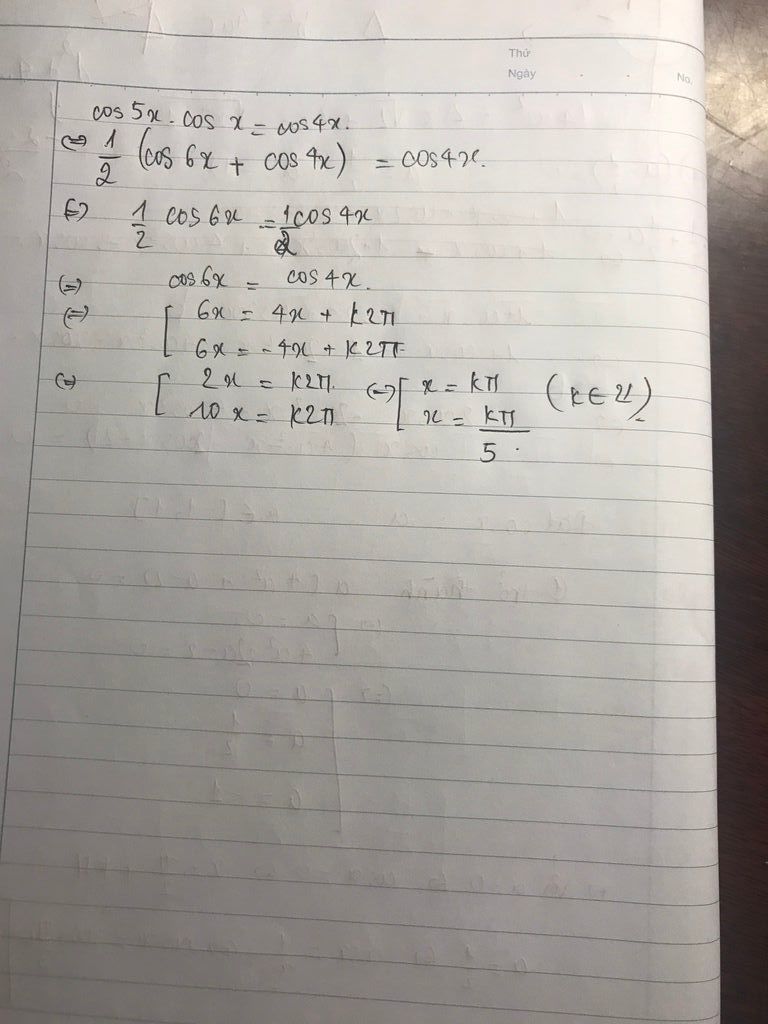 Thứ
Ngày . . No.
cos 5x . cos x = cos4x.
⇔ 1/2 (cos 6x + cos 4x) = cos4x.
⇔ 1/2 cos 6x = 1/2 cos 4x
⇔ cos6x = cos 4x.
⇔ [ 6x = 4x + k2π
6x = -4x + k2π
⇔ [ 2x = k2π. ⇔ [ x = kπ (k ∈ Z)
10x = k2π x = kπ/5 .